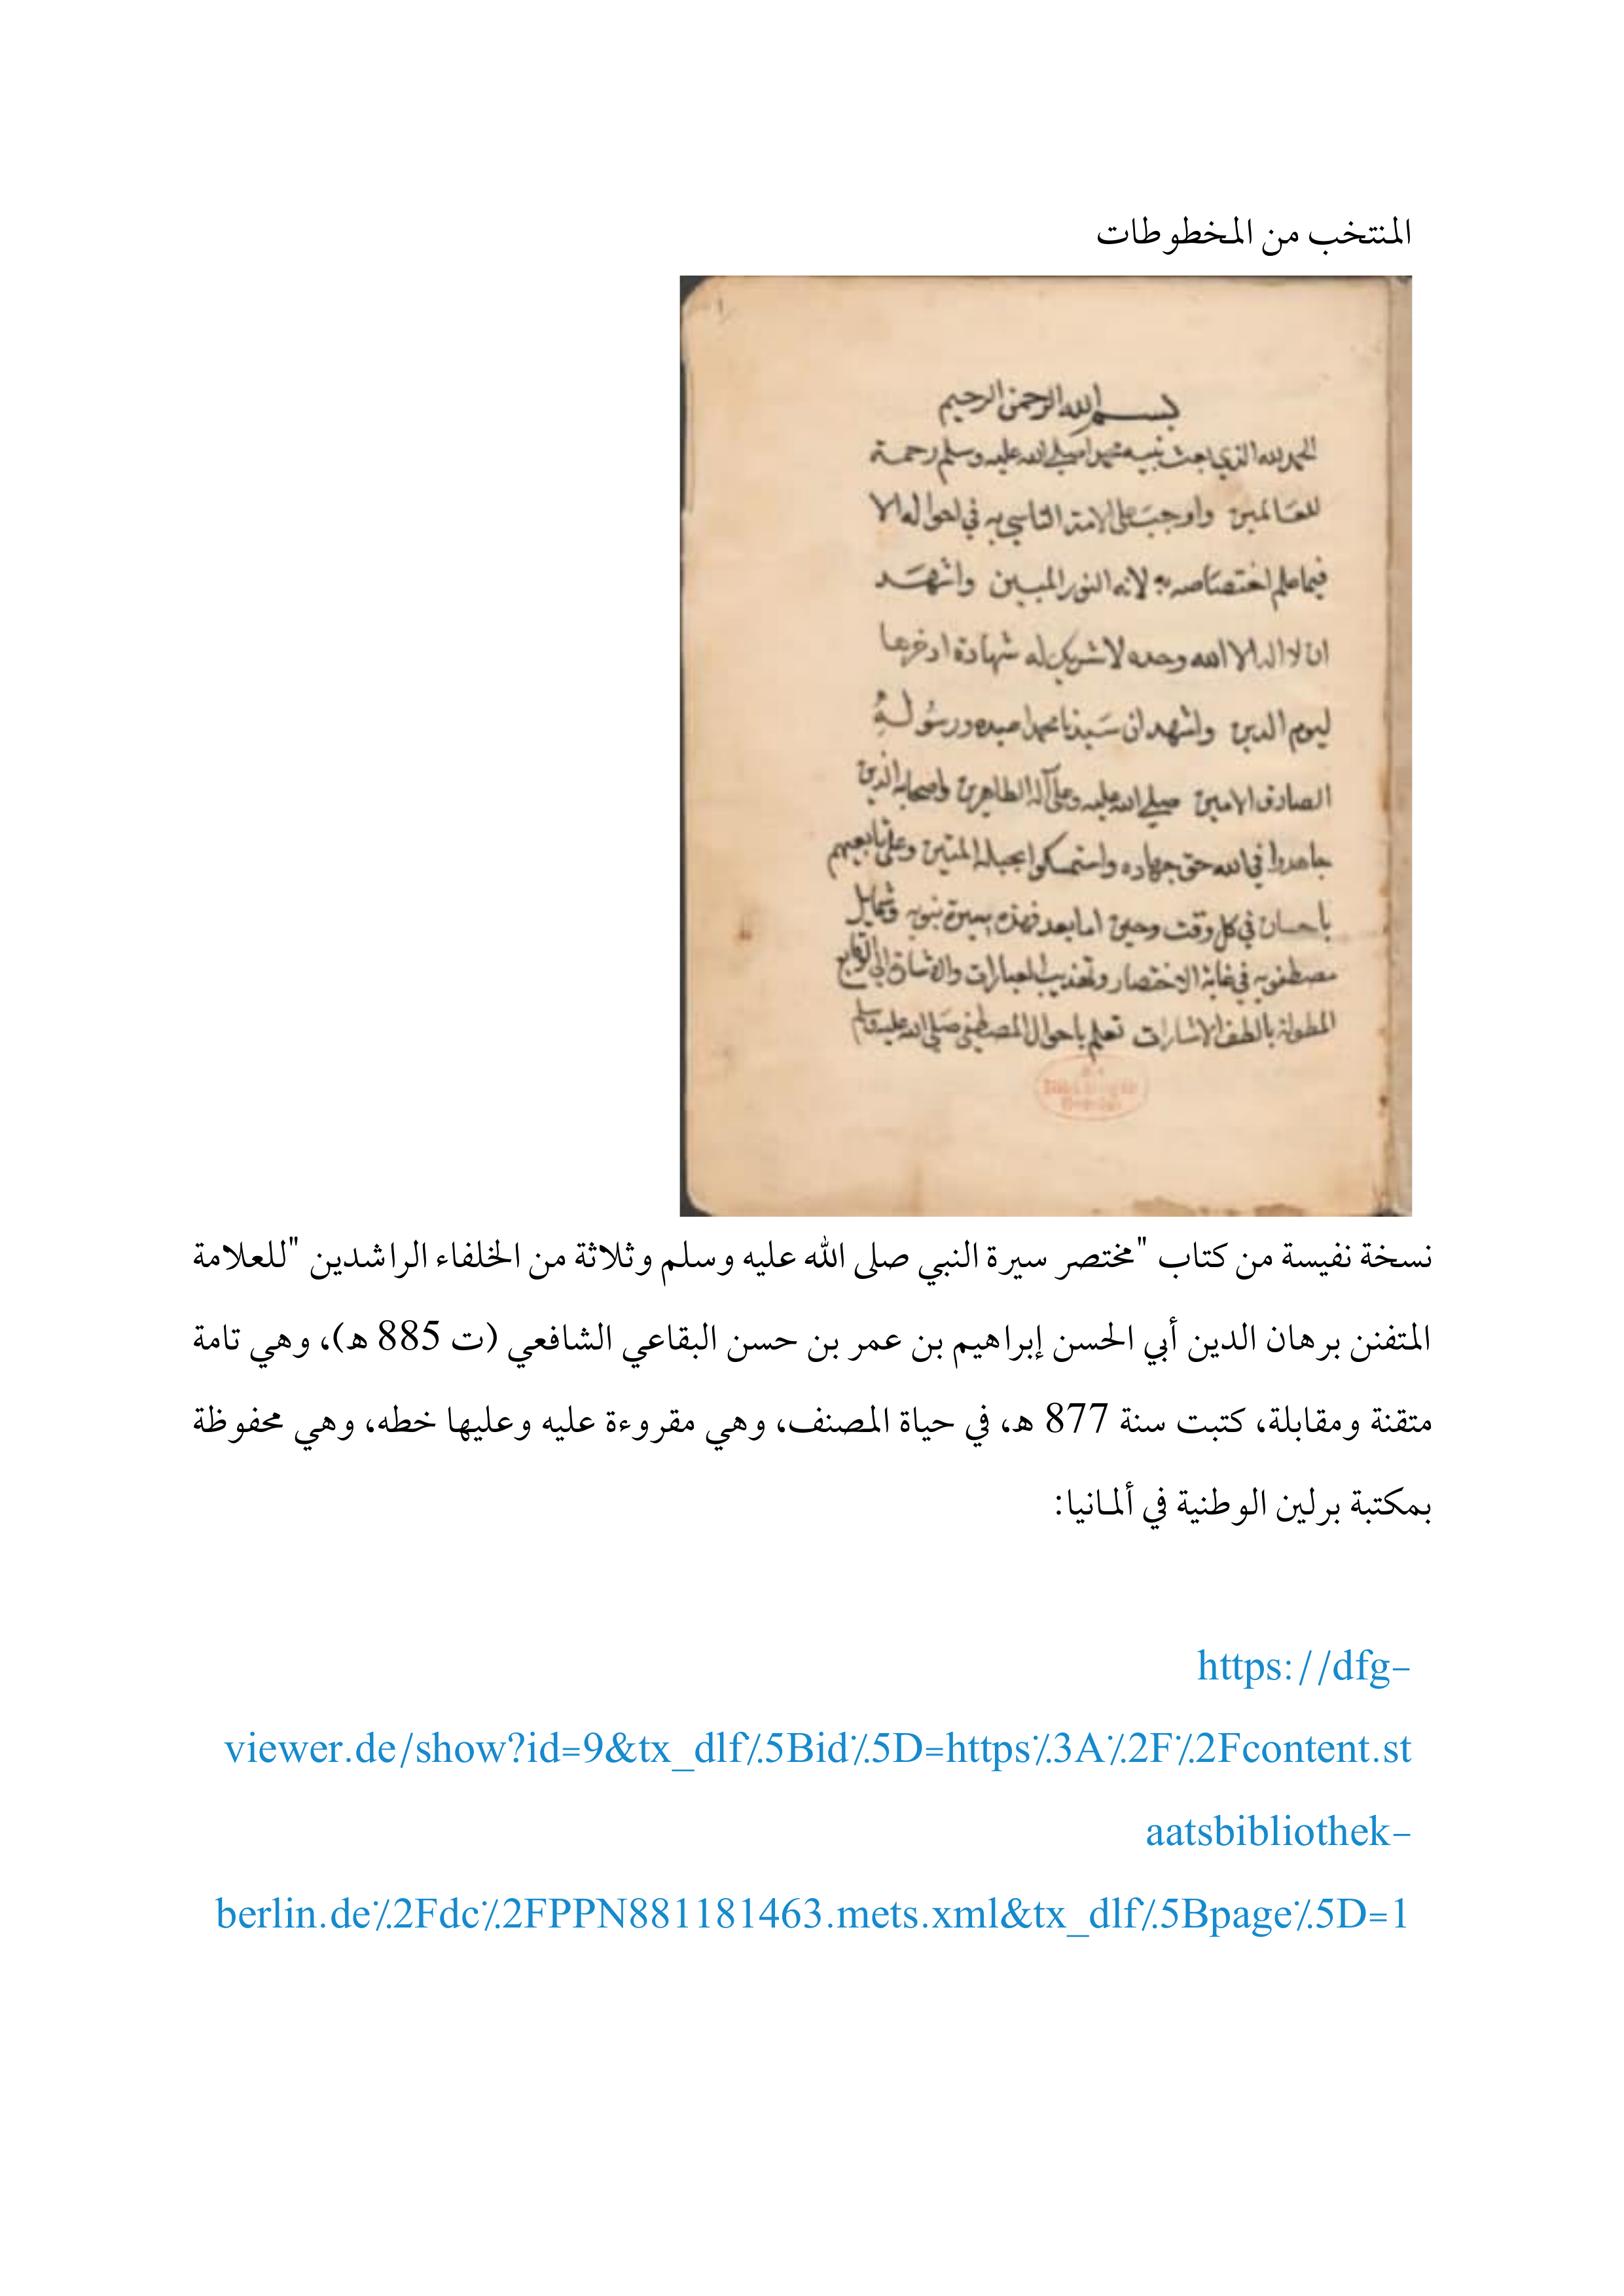 المنتخب من المخطوطات
بسم الله الرحمن الرحيم
الحمد لله الذي بعث نبيه محمدا صلى الله عليه وسلم رحمة
للعالمين واوجب على الامة التاسي به في احواله الا
فيما علم اختصاصه به لانه النور المبين واشهد
ان لا اله الا الله وحده لا شريك له شهادة ادخرها
ليوم الدين واشهد ان سيدنا محمدا عبده ورسوله
الصادق الامين صلى الله عليه وعلى آله الطاهرين واصحابه الذين
جاهدوا في الله حق جهاده واستمسكوا بحبله المتين وعلى تابعيهم
باحسان في كل وقت وحين اما بعد فهذه سيرة نبويه وشمايل
مصطفويه في غاية الاختصار وتهذيب العبارات والاشارة الى
المطولة بالطف الاشارات تعلم باحوال المصطفى صلى الله عليه وسلم
نسخة نفيسة من كتاب "مختصر سيرة النبي صلى الله عليه وسلم وثلاثة من الخلفاء الراشدين "للعلامة
المتفنن برهان الدين أبي الحسن إبراهيم بن عمر بن حسن البقاعي الشافعي (ت 885 هـ)، وهي تامة
متقنة ومقابلة، كتبت سنة 877 هـ، في حياة المصنف، وهي مقروءة عليه وعليها خطه، وهي محفوظة
بمكتبة برلين الوطنية في ألمانيا:
https://dfg-
viewer.de/show?id=9&tx_dlf%5Bid%5D=https%3A%2F%2Fcontent.st
aatsbibliothek-
berlin.de%2Fdc%2FPPN881181463.mets.xml&tx_dlf%5Bpage%5D=1